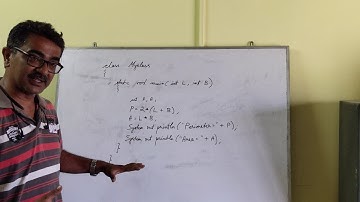 class Myclass
{
static void main ( int L, int B)
int P, A;
P = 2 * (L + B);
A = L * B;
System.out.println ("Perimeter=" + P);
System.out.println ("Area=" + A);
}
}